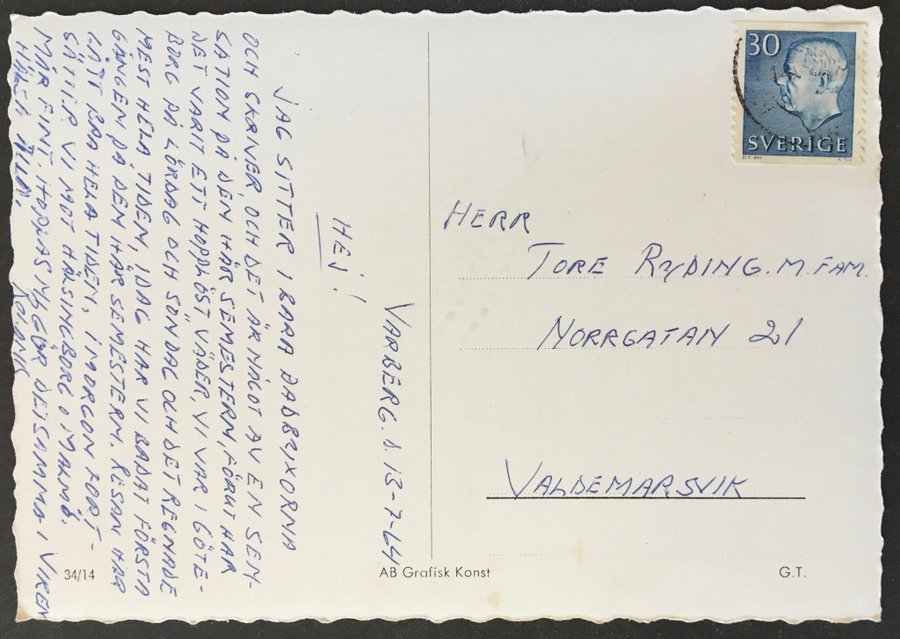 VARBERG. D. 13-7-64
HEJ!
JAG SITTER I BARA BADBYXORNA
OCH SKRIVER, OCH DET ÄR NÅGOT AV EN SEN-
SATION PÅ DEN HÄR SEMESTERN, FÖRUT HAR
DET VARIT ETT HOPPLÖST VÄDER, VI VAR I GÖTE-
BORG PÅ LÖRDAG OCH SÖNDAG OCH DET REGNADE
MEST HELA TIDEN, IDAG HAR VI BADAT FÖRSTA
GÅNGEN PÅ DEN HÄR SEMESTERN. RESAN HAR
GÅTT BRA HELA TIDEN, I MORGON FORT-
SÄTTER VI MOT HÄLSINGBORG O MALMÖ.
MÅR FINT. HOPPAS NI GÖR DETSAMMA I VIKEN
HÄLSA ALLA.
ROLAND
30
SVERIGE
HERR
TORE RYDING. M. FAM.
NORRGATAN 21
VALDEMARSVIK
34/14
AB Grafisk Konst
G.T.